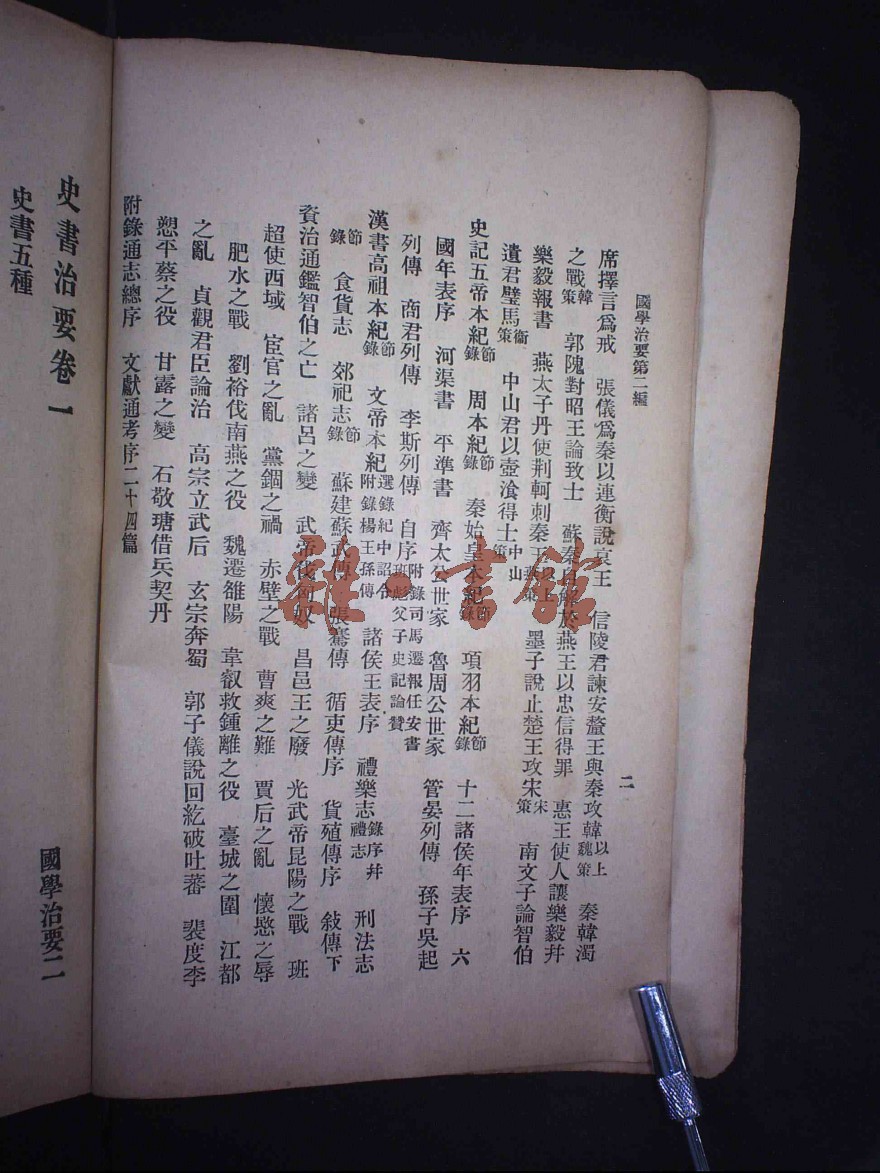 國學治要第二編
二
席擇言爲戒　張儀爲秦以連衡說哀王　信陵君諫安釐王與秦攻韓以上魏策　秦韓濁
之戰韓策　郭隗對昭王論致士　蘇秦自解於燕王以忠信得罪　惠王使人讓樂毅幷
樂毅報書　燕太子丹使荆軻刺秦王以上燕策　墨子說止楚王攻宋宋策　南文子論智伯
遺君璧馬衞策　中山君以壺飡得士中山策
史記五帝本紀節錄　周本紀節錄　秦始皇本紀節錄　項羽本紀節錄　十二諸侯年表序　六
國年表序　河渠書　平準書　齊太公世家　魯周公世家　管晏列傳　孫子吳起
列傳　商君列傳　李斯列傳　自序附錄司馬遷報任安書班彪父子史記論贊
漢書高祖本紀節錄　文帝本紀選錄紀中詔令附錄楊王孫傳　諸侯王表序　禮樂志錄序幷禮志　刑法志
節錄　食貨志　郊祀志節錄　蘇建蘇武傳　張騫傳　循吏傳序　貨殖傳序　敍傳下
資治通鑑智伯之亡　諸呂之變　武帝伐匈奴　昌邑王之廢　光武帝昆陽之戰　班
超使西域　宦官之亂　黨錮之禍　赤壁之戰　曹爽之難　賈后之亂　懷愍之辱
肥水之戰　劉裕伐南燕之役　魏遷雒陽　韋叡救鍾離之役　臺城之圍　江都
之亂　貞觀君臣論治　高宗立武后　玄宗奔蜀　郭子儀說回紇破吐蕃　裴度李
愬平蔡之役　甘露之變　石敬瑭借兵契丹
附錄通志總序　文獻通考序二十四篇
史書治要卷一
國學治要二
史書五種
雜·書館